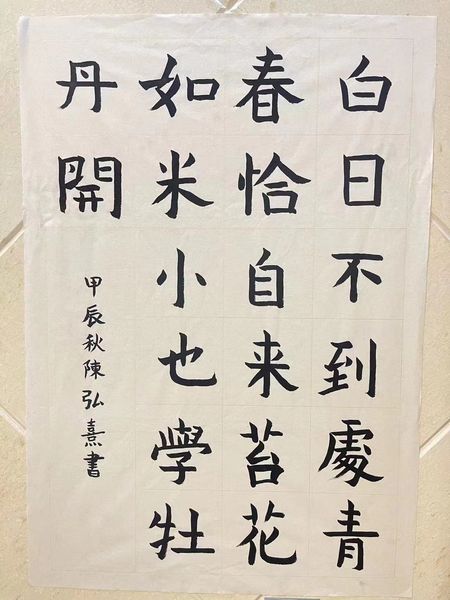 白日不到處青
春恰自来苔花
如米小也學牡
丹開
甲辰秋陳弘熹書